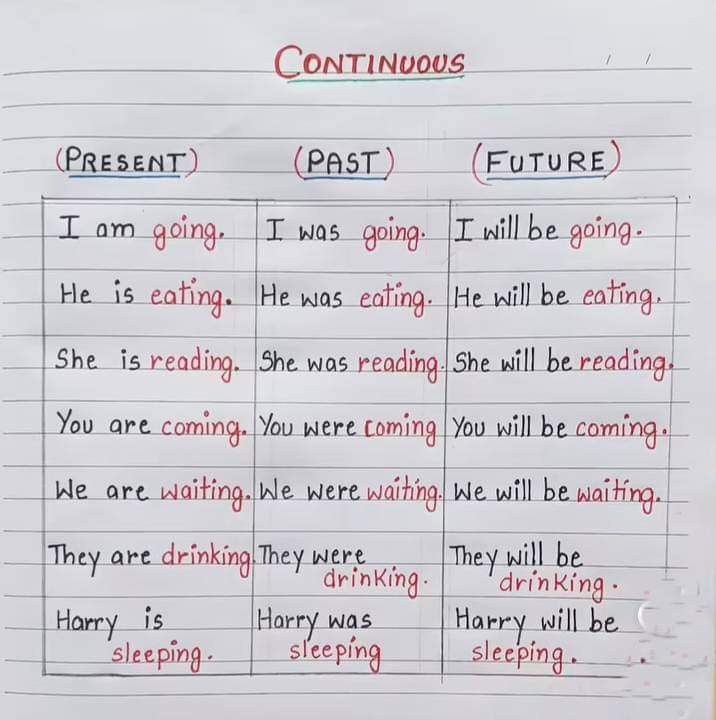 CONTINUOUS
(PRESENT) (PAST) (FUTURE)
I am going. I was going. I will be going.
He is eating. He was eating. He will be eating.
She is reading. She was reading. She will be reading.
You are coming. You were coming You will be coming.
We are waiting. We were waiting. We will be waiting.
They are drinking. They were drinking. They will be drinking.
Harry is sleeping. Harry was sleeping Harry will be sleeping.